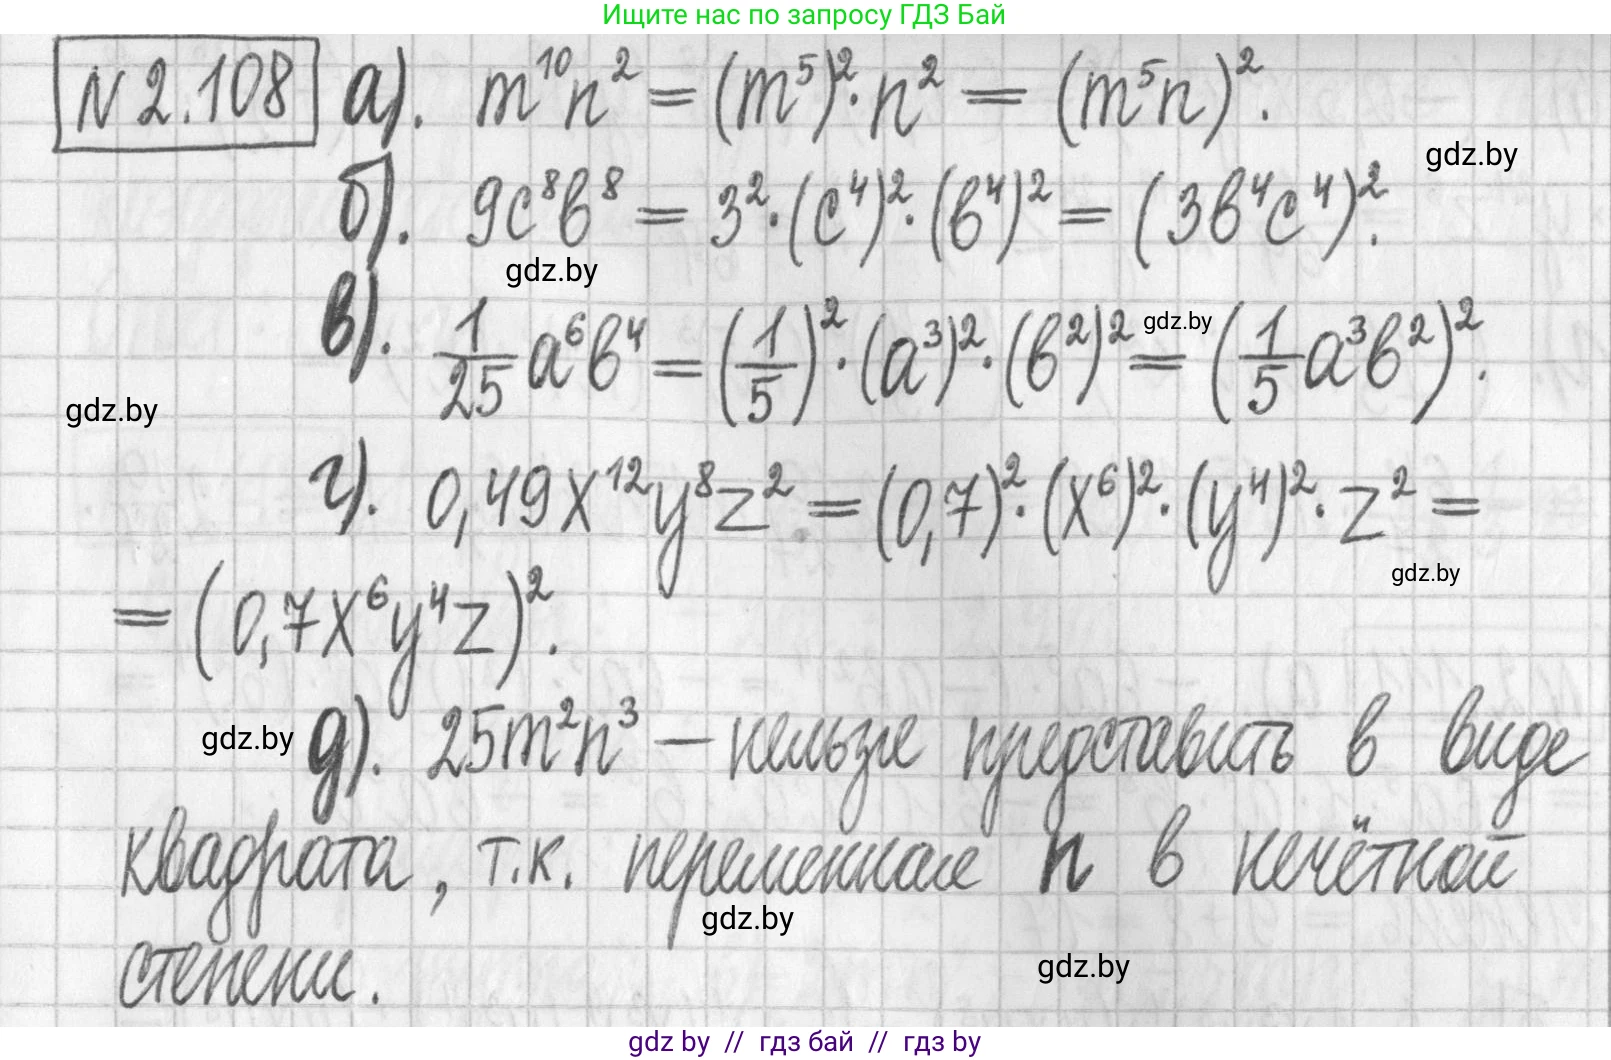 Ищите нас по запросу ГДЗ Бай
N 2.108 а). m¹⁰n² = (m⁵)²·n² = (m⁵n)².
gdz.by
б). 9c⁸b⁸ = 3²·(c⁴)²·(b⁴)² = (3b⁴c⁴)².
gdz.by
в). 1/25 a⁶b⁴ = (1/5)²·(a³)²·(b²)² = (1/5 a³b²)².
gdz.by
gdz.by
г). 0,49x¹²y⁸z² = (0,7)²·(x⁶)²·(y⁴)²·z² =
gdz.by
= (0,7x⁶y⁴z)².
gdz.by
д). 25m²n³ – нельзя представить в виде
квадрата, т.к. переменная n в нечётной
gdz.by
степени.
gdz.by
gdz by // гдз бай // гдз by